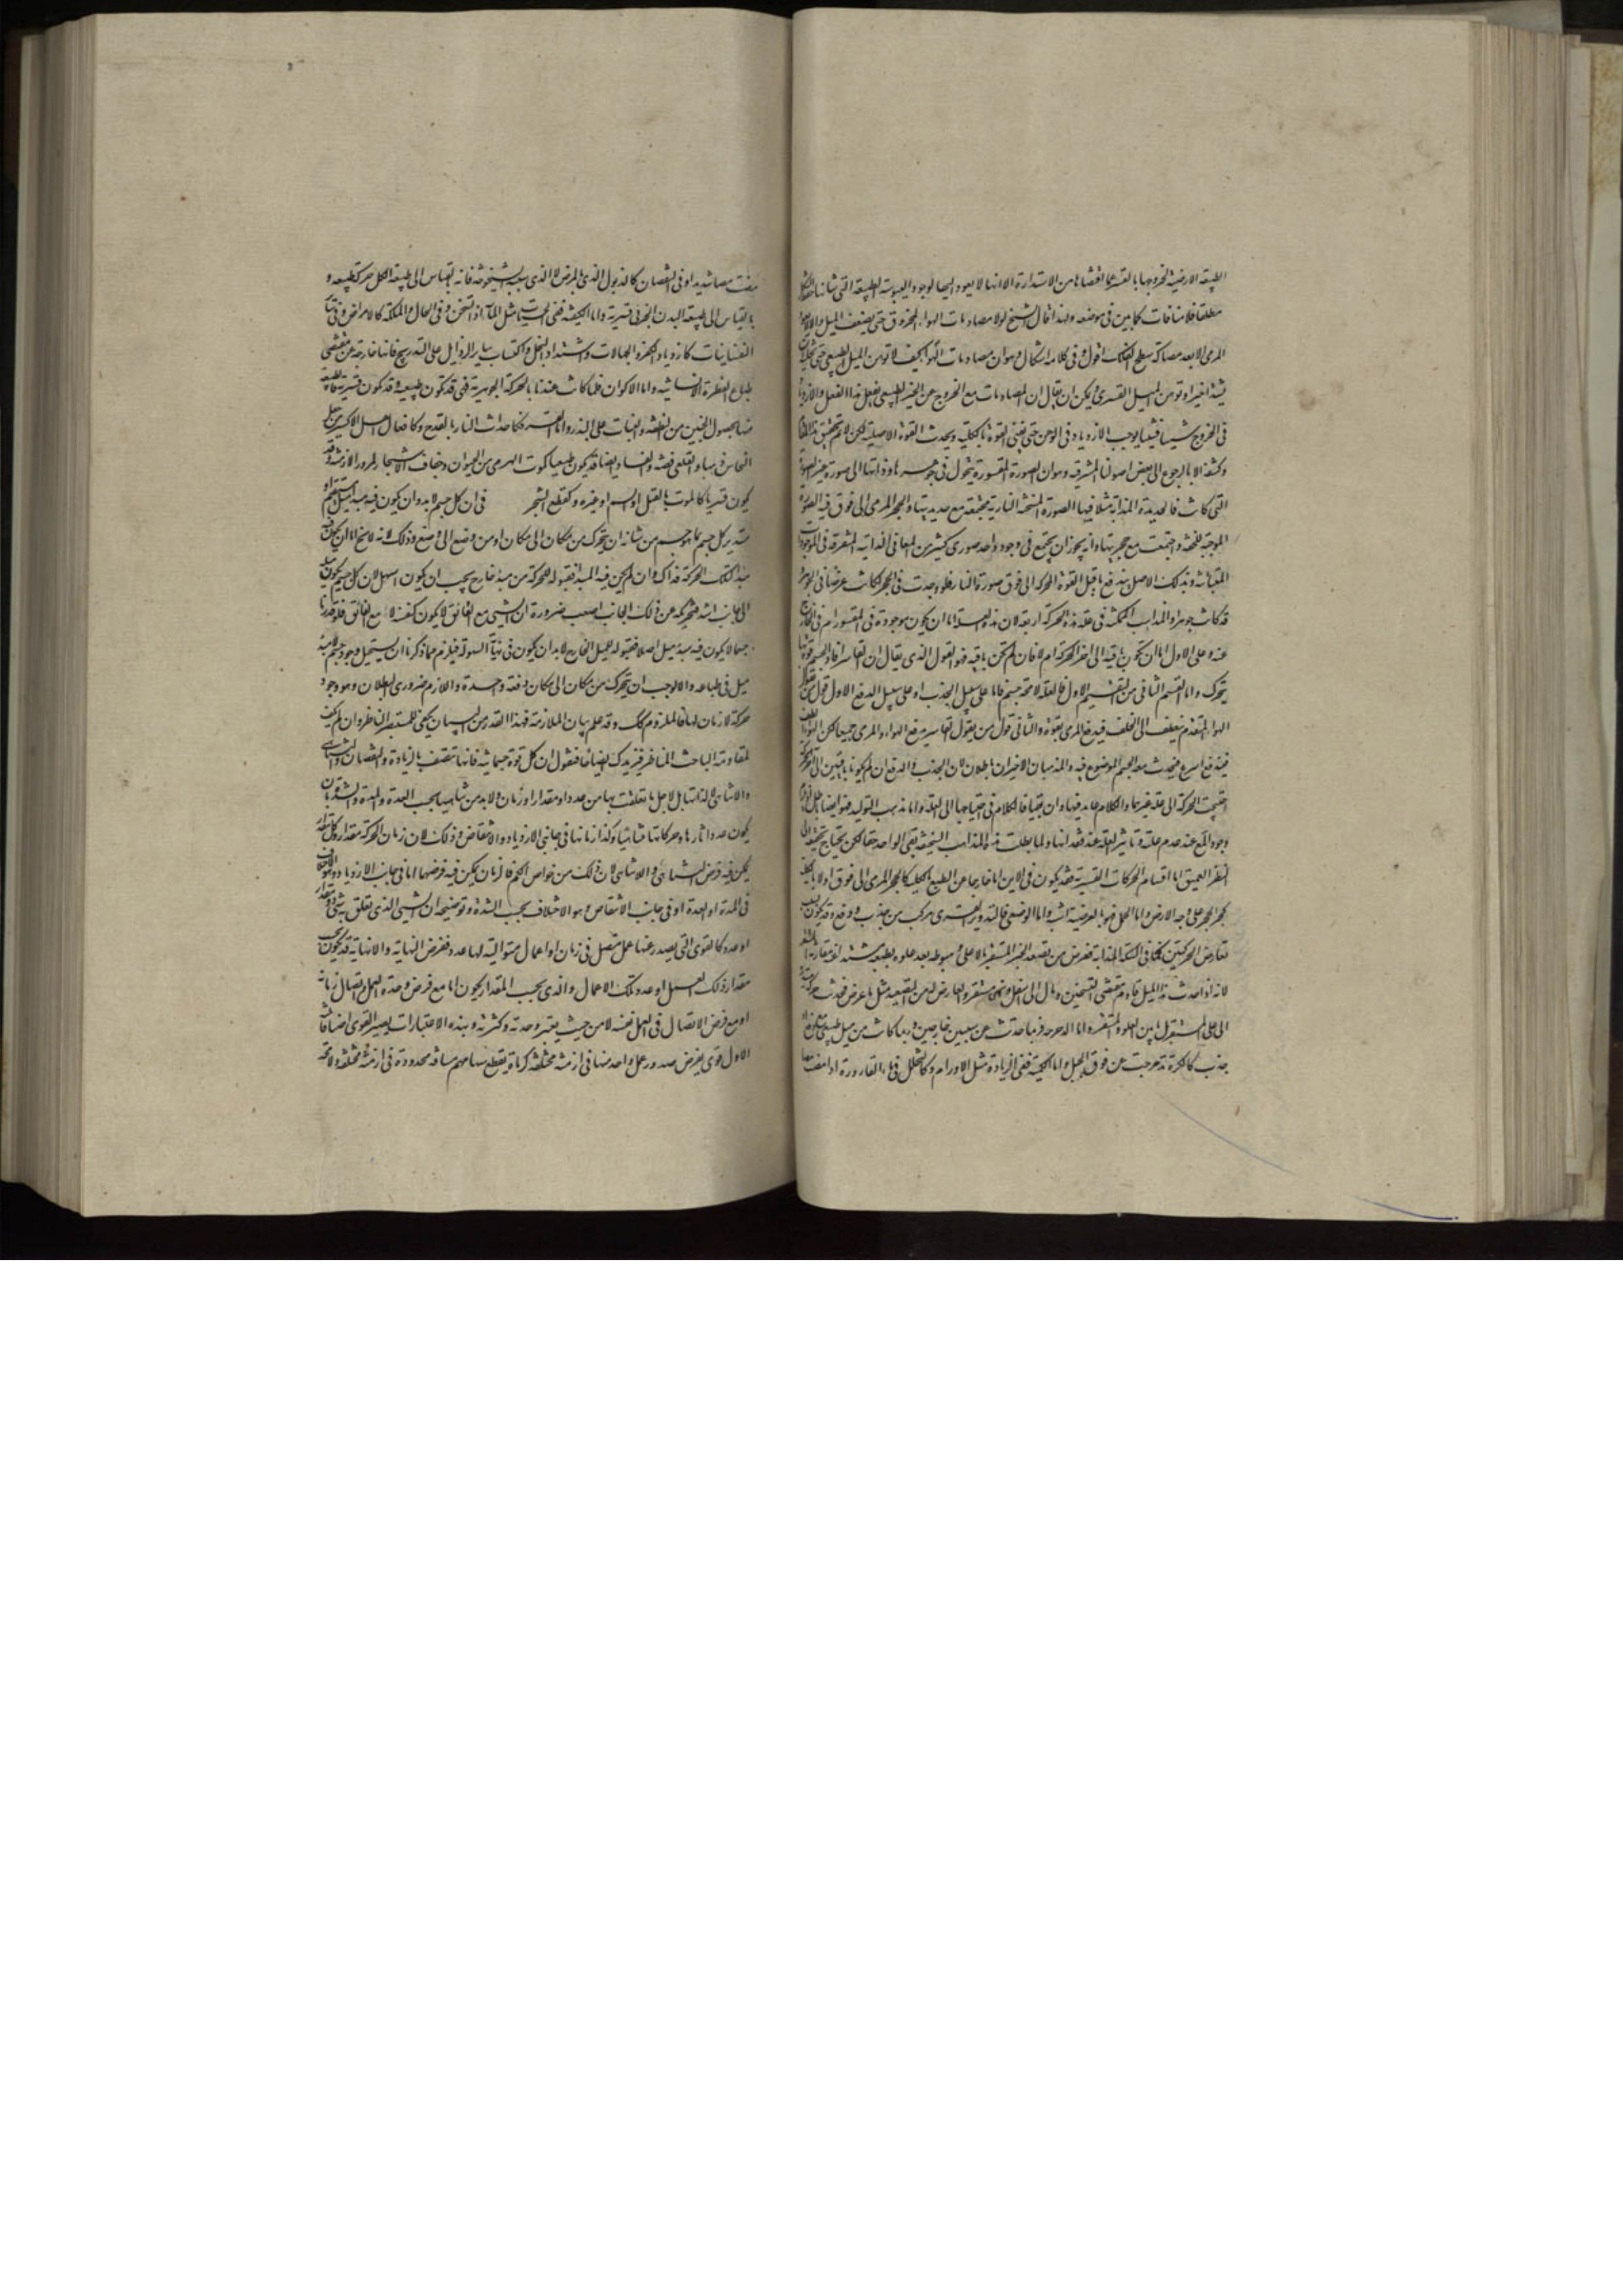 الطبيعة الارضية لخروجها بالقسر عما اقتضاها من الاستدارة الا انها لا يعود اليها لوجود اليبوسة الطبيعة التى شانها حفظ الشكل
مطلقا فلا منافات كما بين فى موضعه ولهذا قال الشيخ لولا مصادمات الهواء المخروق حتى يضعف الميل
المرمى الا بعد مصاكة سطح الفلك اقول وفى كلامه اشكال وهو ان مصادمات الهواء كيف لا توهن الميل الطبيعى حتى
شيئا اخيرا وتوهن الميل القسرى ويمكن ان يقال ان المصادمات مع الخروج عن الحيز الطبيعى يفعل هذا الفعل والازدياد
فى الخروج شيئا فشيئا يوجب الازدياد فى الوهن حتى تفنى القوة بالكلية ويحدث القوة الاصلية لكن لا يتم تحقيق هذا المقام
وكشفه الا بالرجوع الى بعض اصولنا المشرقية وهو ان الصورة المقسورة يتحول فى جوهرها وذاتها الى صورة غير الصورة
التى كانت فالحديدة المذابة مثلا فيها الصورة المسخنة النارية مجتمعة مع حديديتها والحجر المرمى الى فوق فيه الصورة
الموجبة للخفة واجتمعت مع حجريتها وانه يجوز ان يجتمع فى وجود واحد صورى كثير من المعانى الذاتية المتفرقة فى الموجودات
المتباينة وبذلك الاصل يندفع ما قيل القوة المحركة الى فوق صورة النار فلو وجدت فى الحجر لكانت عرضا فى الجوهر
قد كانت جوهرا والمذاهب الممكنة فى علة هذه الحركة اربعة لان هذه العلة اما ان يكون موجودة فى المقسور ام فى الخارج
عنه وعلى الاول اما ان يكون باقية الى اخر الحركة ام لا فان لم تكن باقية فهو القول الذى يقال ان القاسر افاد الجسم قوة بها
يتحرك واما القسم الثانى من التقسيم الاول فالعلة لا محة جسم فاما على سبيل الجذب او على سبيل الدفع الاول قول من يقول
الهواء المتقدم ينعطف الى الخلف فيدفع المرمى بقوة والثانى قول من يقول القاسر يدفع الهواء والمرمى جميعا لكن الهواء الطف
فيندفع اسرع فيجذب معه الجسم الموضوع فيه والمذهبان الاخيران باطلان لان الجذب والدفع ان لم يكونا باقيين الى اخر الحركة
احتيجت الحركة الى علة غيرهما والكلام عايد فيها وان بقيا فالكلام فى احتياجها الى العلة واما مذهب التوليد فهو ايضا باطل
وجود المع عند عدم علته وتاثير العلة عند فقدانها ولما بطلت هذه المذاهب السخيفة بقى الواحد حقا لكن يحتاج تحقيقه الى
النظر العميق اما اقسام الحركات القسرية فقد يكون فى الاين اما خارجا عن الطبع بالكلية كالحجر المرمى الى فوق او لا بالكلية
كجر الحجر على وجه الارض واما الحمل فهو بالعرضية اشبه واما الوضعى فالتدوير القسرى مركب من جذب ودفع وقد يكون لسبب
تعارض الحركتين كما فى السبيكة المذابة تعرض من تصعد الجزء المستقر بالاعلى وهبوطه بعد علوه بطبعه
لانه اذا حدث هذا الميل قاوم مقتضى التسخين ومال الى اسفل ونحى مستقره العارض له من التصعيد مثل ما عرض فحدثت حركة
الى على المستقر اين العلو والمستقر واما الدحرجة فربما حدثت عن سببين خارجين وربما كانت من ميل طبيعى مع دفع او
جذب كالكرة تدحرجت عن فوق الجبل واما الكمية ففى الزيادة مثل الاورام وكالتخلل فى ماء القارورة اذا مصت
مصت مصا شديدا وفى النقصان كالذبول الذى بالمرض لا الذى بسبب الشيخوخة فانه بالقياس الى طبيعة الكل حركة طبيعية و
بالقياس الى طبيعة البدن الجزئى قسرية واما الكيفية ففى الحسيات مثل الماء اذا تسخن وفى الحال والملكة كالامراض وفى
النفسانيات كازدياد الكفر والجهالات واشتداد البخل واكتساب ساير الرذايل على التدريج فانها خارجة عن مقتضى
طباع الفطرة الانسانية واما الاكوان فلما كانت عندنا بالحركة الجوهرية فهى قد تكون طبيعية وقد تكون قسرية فالطبيعة
منها حصول الجنين من النطفة والنبات على البذر واما القسر فكاحداث النار بالقدح وكافعال اهل الاكسير من جعل
النحاس ذهبا والقلعى فضة والفساد ايضا قد يكون طبيعيا كموت الهرمى من الحيوان وجفاف الاشجار لمرور الازمنة وقد
يكون قسريا كالموت بالقتل او السم او غيره وكقطع الشجر فى ان كل جسم لا بد وان يكون فيه مبدا ميل مستقيم او
مستدير كل جسم بما هو جسم من شانه ان يتحرك من مكان الى مكان او من وضع الى وضع وذلك لانه لا يخ اما ان يكون فيه
مبدا لتلك الحركة فذاك وان لم يكن فيه المبدا فقبوله للحركة من مبدا خارج يجب ان يكون اسهل لان كل جسم يكون ميله
الى جانب اشد فتحريكه عن ذلك الجانب اصعب ضرورة ان الشىء مع العائق لا يكون كنفسه لا مع العائق فلو قدرنا
جسما لا يكون فيه مبدا ميل اصلا فقبوله للميل الخارج لا بد ان يكون فى نهاية السهولة فيلزم مما ذكرنا ان يستحيل وجود جسم لا مبدا
ميل فى طباعه والا لوجب ان يتحرك من مكان الى مكان دفعة واحدة واللازم ضرورى البطلان وهو وجود
حركة لا زمان لها فالملزوم كك وقد علم بيان الملازمة فهذا القدر من البيان يكفى للمستبصر الناظر وان لم يكف
لمقاومة الباحث المناظر فنزيدك ايضاحا فنقول ان كل قوة جسمانية فانها تتصف بالزيادة والنقصان والتناهى
واللاتناهى لا لذاتها بل لاجل ما تعلقت بها من عدد او مقدار او زمان ولا بد من تناهيها بحسب العدة والمدة والشدة بان
يكون عدد اثارها وحركاتها متناهيا وكذا زمانها فى جانبى الازدياد والانتقاص وذلك لان زمان الحركة مقدار وكل مقدار
يمكن فيه فرض التناهى واللاتناهى لان ذلك من خواص الكم فالزمان يمكن فيه فرضهما اما فى جانب الازدياد وهو الاختلاف
فى المدة او العدة او فى جانب الانتقاص وهو الاختلاف بحسب الشدة وتوضيحه ان الشىء الذى تعلق بشىء ذى مقدار
او عدد كالقوى التى يصدر عنها عمل متصل فى زمان او اعمال متوالية لها عدد ففرض النهاية واللانهاية قد يكون بحسب
مقدار ذلك العمل او عدد تلك الاعمال والذى بحسب المقدار يكون اما مع فرض وحدة العمل واتصال زمانه
او مع فرض الاتصال فى العمل نفسه لا من حيث يعتبر وحدته وكثرته وبهذه الاعتبارات يصير القوى اصنافا ثلثة
الاول قوى يفرض صدور عمل واحد منها فى ازمنة مختلفة كرماة يقطع سهامهم مسافة محدودة فى ازمنة مختلفة ولا محة